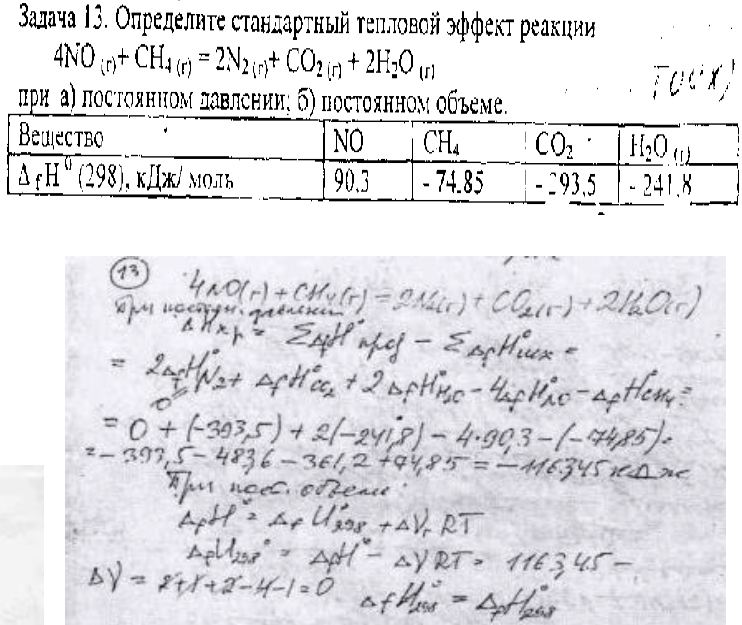 Задача 13. Определите стандартный тепловой эффект реакции
4NO (г)+ CH₄ (г) = 2N₂ (г)+ CO₂ (г) + 2H₂O (г)
при а) постоянном давлении; б) постоянном объеме.
Вещество NO CH₄ CO₂ H₂O (г)
Δ f H⁰ (298), кДж/ моль 90,3 - 74.85 - 393,5 - 241,8
13
4NO(г) + CH₄(г) = 2N₂(г) + CO₂(г) + 2H₂O(г)
При постоян. давлении
ΔH х.р = ΣΔfH° прод – ΣΔfH° исх =
= 2ΔfH°N₂ + ΔfH°CO₂ + 2ΔfH°H₂O – 4ΔfH°NO – ΔfH°CH₄ =
0
= 0 + (-393,5) + 2(-241,8) – 4·90,3 – (-74,85) =
= -393,5 – 483,6 – 361,2 + 74,85 = – 1163,45 кДж
При пост. объеме:
ΔfH° = ΔfU°298 + ΔVг RT
ΔfU298° = ΔfH° – ΔVRT = 1163,45 –
ΔV = 2+1+2-4-1=0 ΔfU°298 = ΔfH°298